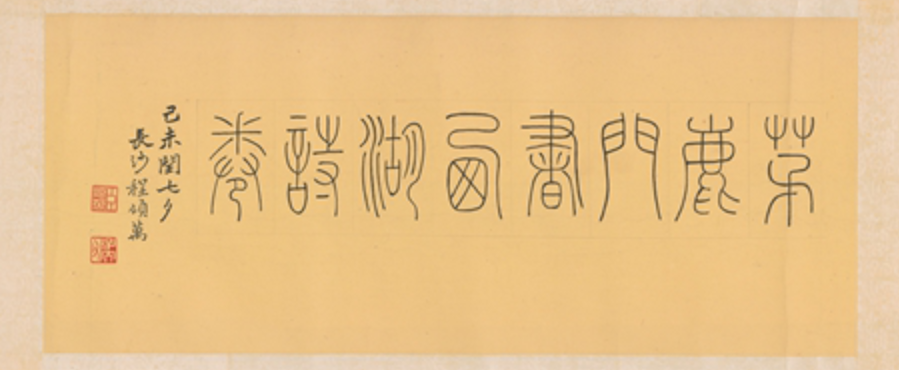 茅鹿門書西湖詩卷
己未閏七夕
長沙程頌萬